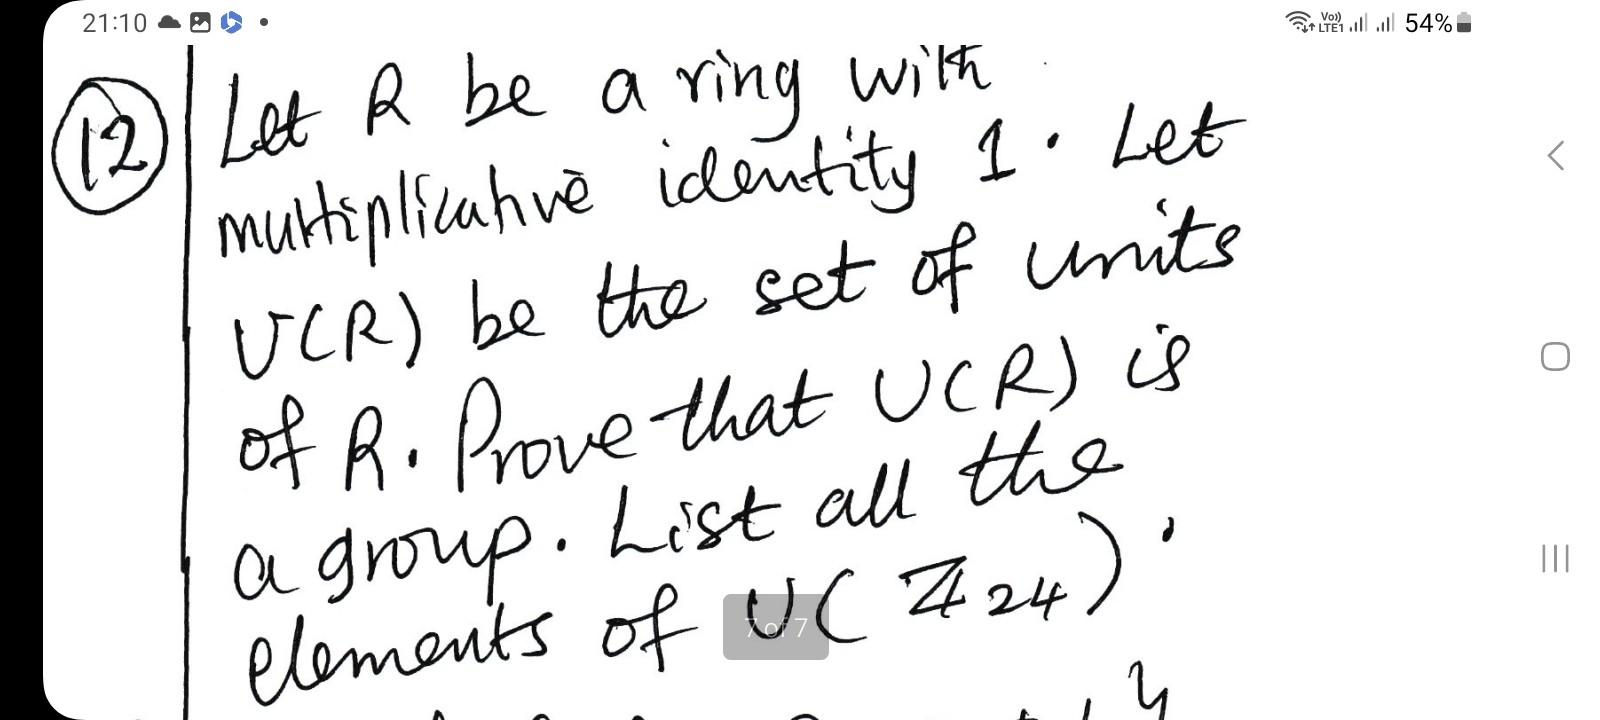 21:10
Vo)) LTE1 54%
12 Let R be a ring with
multiplicative identity 1. Let
U(R) be the set of units
of R. Prove that U(R) is
a group. List all the
elements of U(ℤ24).
7 of 7